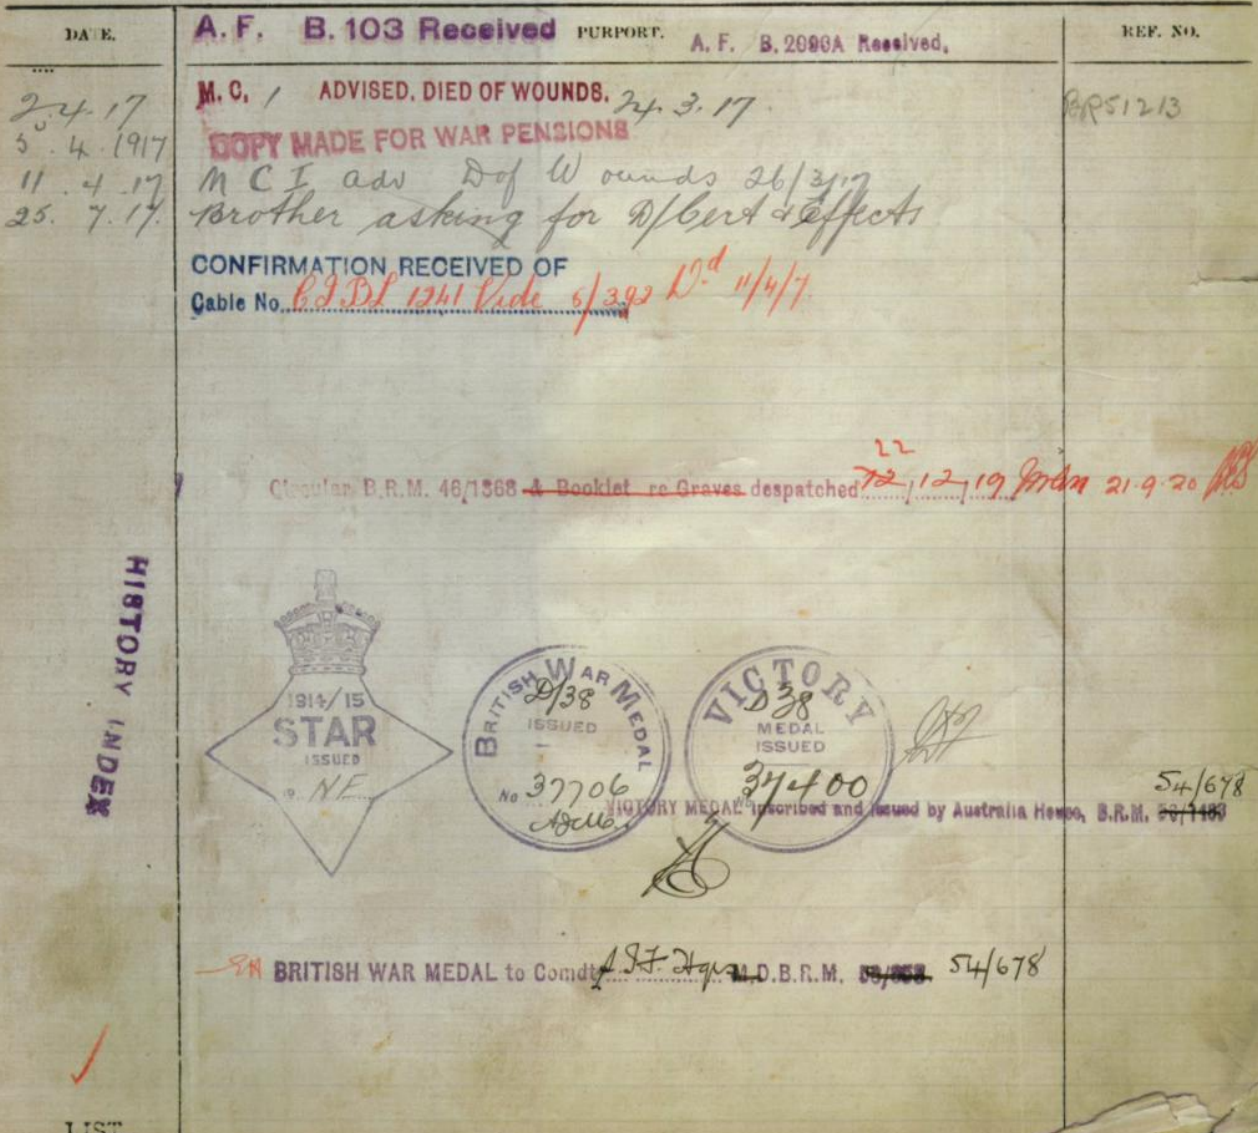 DATE. A. F. B. 103 Received PURPORT. A. F. B. 2090A Received. REF. NO.
2.4.17 M. C. 1 ADVISED, DIED OF WOUNDS. 24.3.17. BRP51213
5.4.1917 COPY MADE FOR WAR PENSIONS
11.4.17 M C I adv D of Wounds 26/3/17
25.7.17. Brother asking for D/Cert & Effects
CONFIRMATION RECEIVED OF
Cable No. 1241 Vide 5/392 Dd 11/4/7.
22
Circular B.R.M. 46/1368 & Booklet re Graves despatched 12,12,19 21.9.20
HISTORY INDEX
1914/15
STAR
ISSUED
NE
BRITISH WAR MEDAL
D/38
ISSUED
No 37706
VICTORY
D38
MEDAL
ISSUED
No 37400
54/678
VICTORY MEDAL inscribed and issued by Australia House, B.R.M. 53/1483
BRITISH WAR MEDAL to Comdt A.I.F. Hqrs M.D.B.R.M. 54/678
LIST